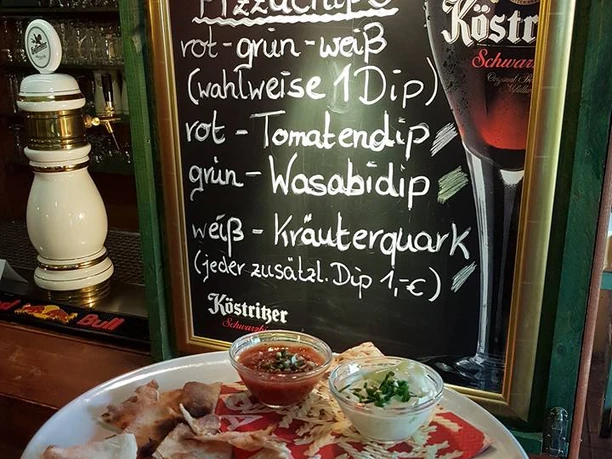 Pizzachips
rot-grün-weiß
(wahlweise 1 Dip)
rot - Tomatendip
grün - Wasabidip
weiß - Kräuterquark
(jeder zusätzl. Dip 1,-€)
Köstritzer
Schwarzbier
Köstritz
Schwarzb
Red Bull